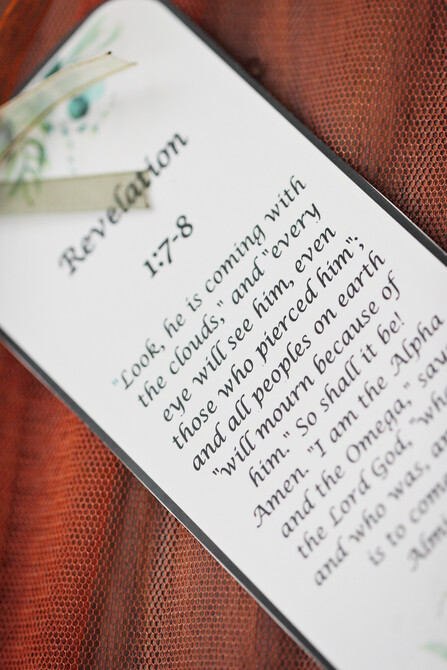 Revelation
1:7-8
"Look, he is coming with
the clouds," and "every
eye will see him, even
those who pierced him";
and all peoples on earth
"will mourn because of
him." So shall it be!
Amen. "I am the Alpha
and the Omega," says
the Lord God, "who
and who was, a
is to com
Alm